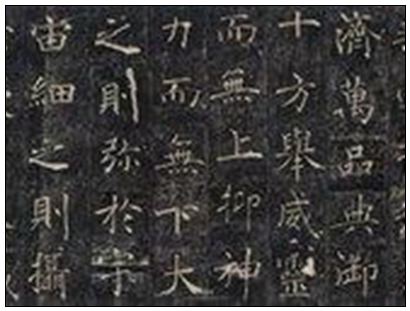 濟萬品典御
十方舉威靈
而無上抑神
力而無下大
之則弥於宇
宙細之則攝